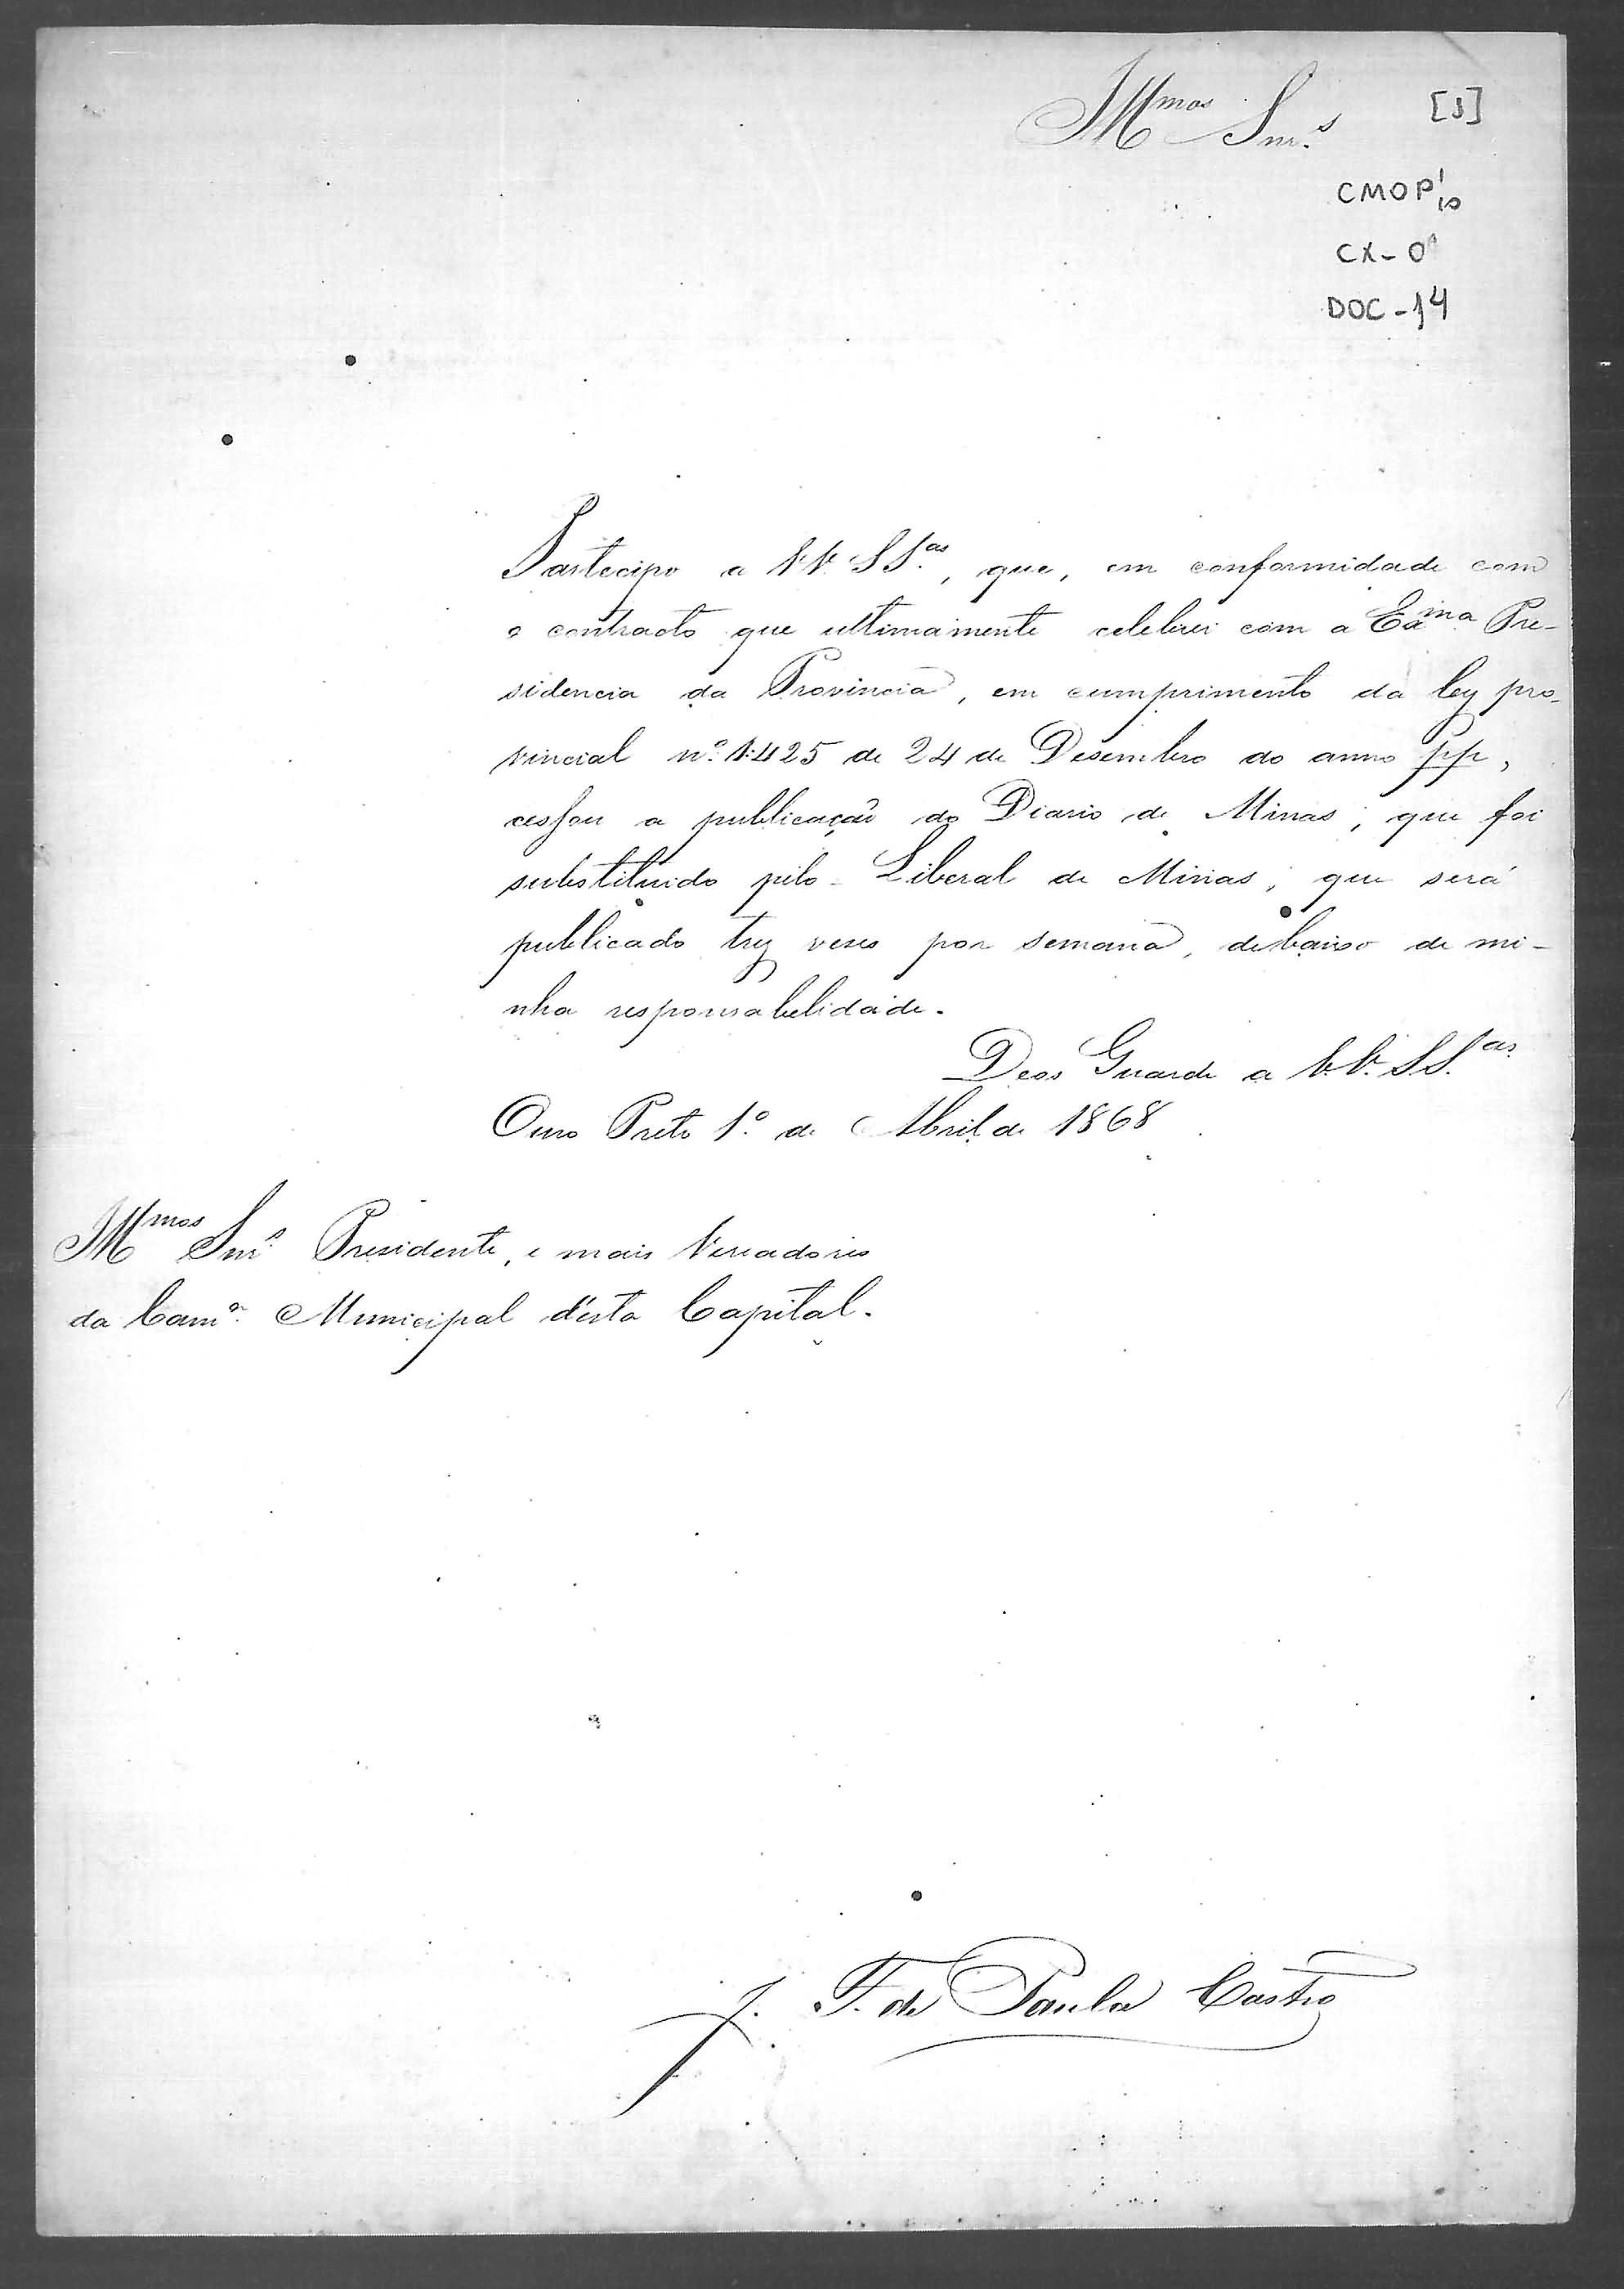 Illmos Snrs.
[1]
CMOP 1/10
CX-01
DOC-14
Partecipo a VV. SSas., que, em conformidade com
o contracto que ultimamente celebrei com a Exma Pre-
sidencia da Provincia, em cumprimento da ley pro-
vincial nº 1:425 de 24 de Desembro do anno pp,
cessou a publicação do Diario de Minas; que foi
substituido pelo Liberal de Minas, que será
publicado trez veses por semana, debaixo de mi-
nha responsabelidade.
Deos Guarde a VV. SSas.
Ouro Preto 1º de Abril de 1868
Illmos Snrs. Presidente, e mais Vereadores
da Camª Municipal d'esta Capital.
J. F. de Paula Castro